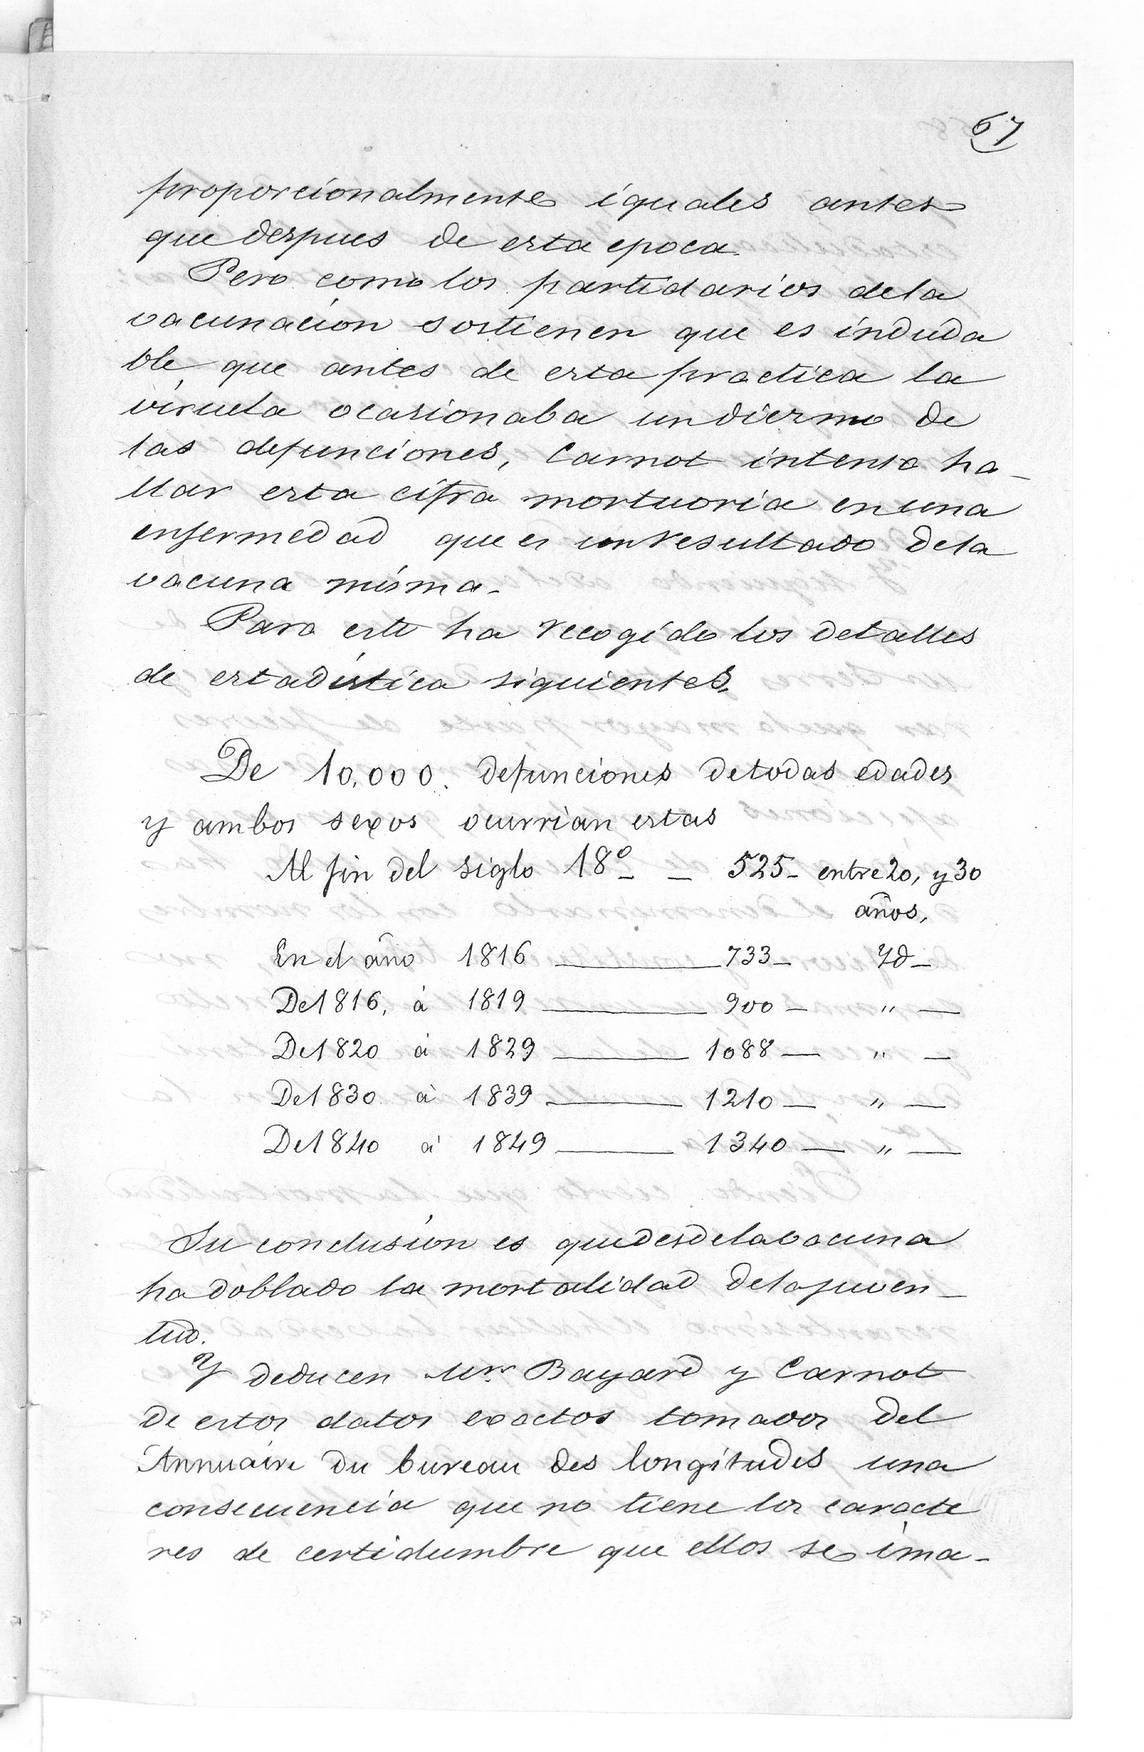 67
proporcionalmente iguales antes
que despues de esta epoca.
Pero como los partidarios dela
vacunacion sostienen que es induda
ble que antes de esta practica la
viruela ocasionaba un diezmo de
las defunciones, Carnot intenta ha-
llar esta cifra mortuoria en una
enfermedad que es un resultado dela
vacuna misma.
Para esto ha recogido los detalles
de estadistica siguientes.
De 10,000. defunciones de todas edades
y ambos sexos ocurrian estas
Al fin del siglo 18º - - 525- entre 20, y 30
años,
En el año 1816 — 733 - Yd -
De 1816, á 1819 — 900 - " —
De 1820 á 1829 — 1088 — " —
De 1830 á 1839 — 1210 — " —
De 1840 á 1849 — 1340 — " —
Su conclusion es que desde la vacuna
ha doblado la mortalidad dela juven-
tud.
Y deducen Mrr. Bayard y Carnot
de estos datos exactos tomados del
Annuaire du bureau des longitudes una
consecuencia que no tiene los caracte
res de certidumbre que ellos se ima-